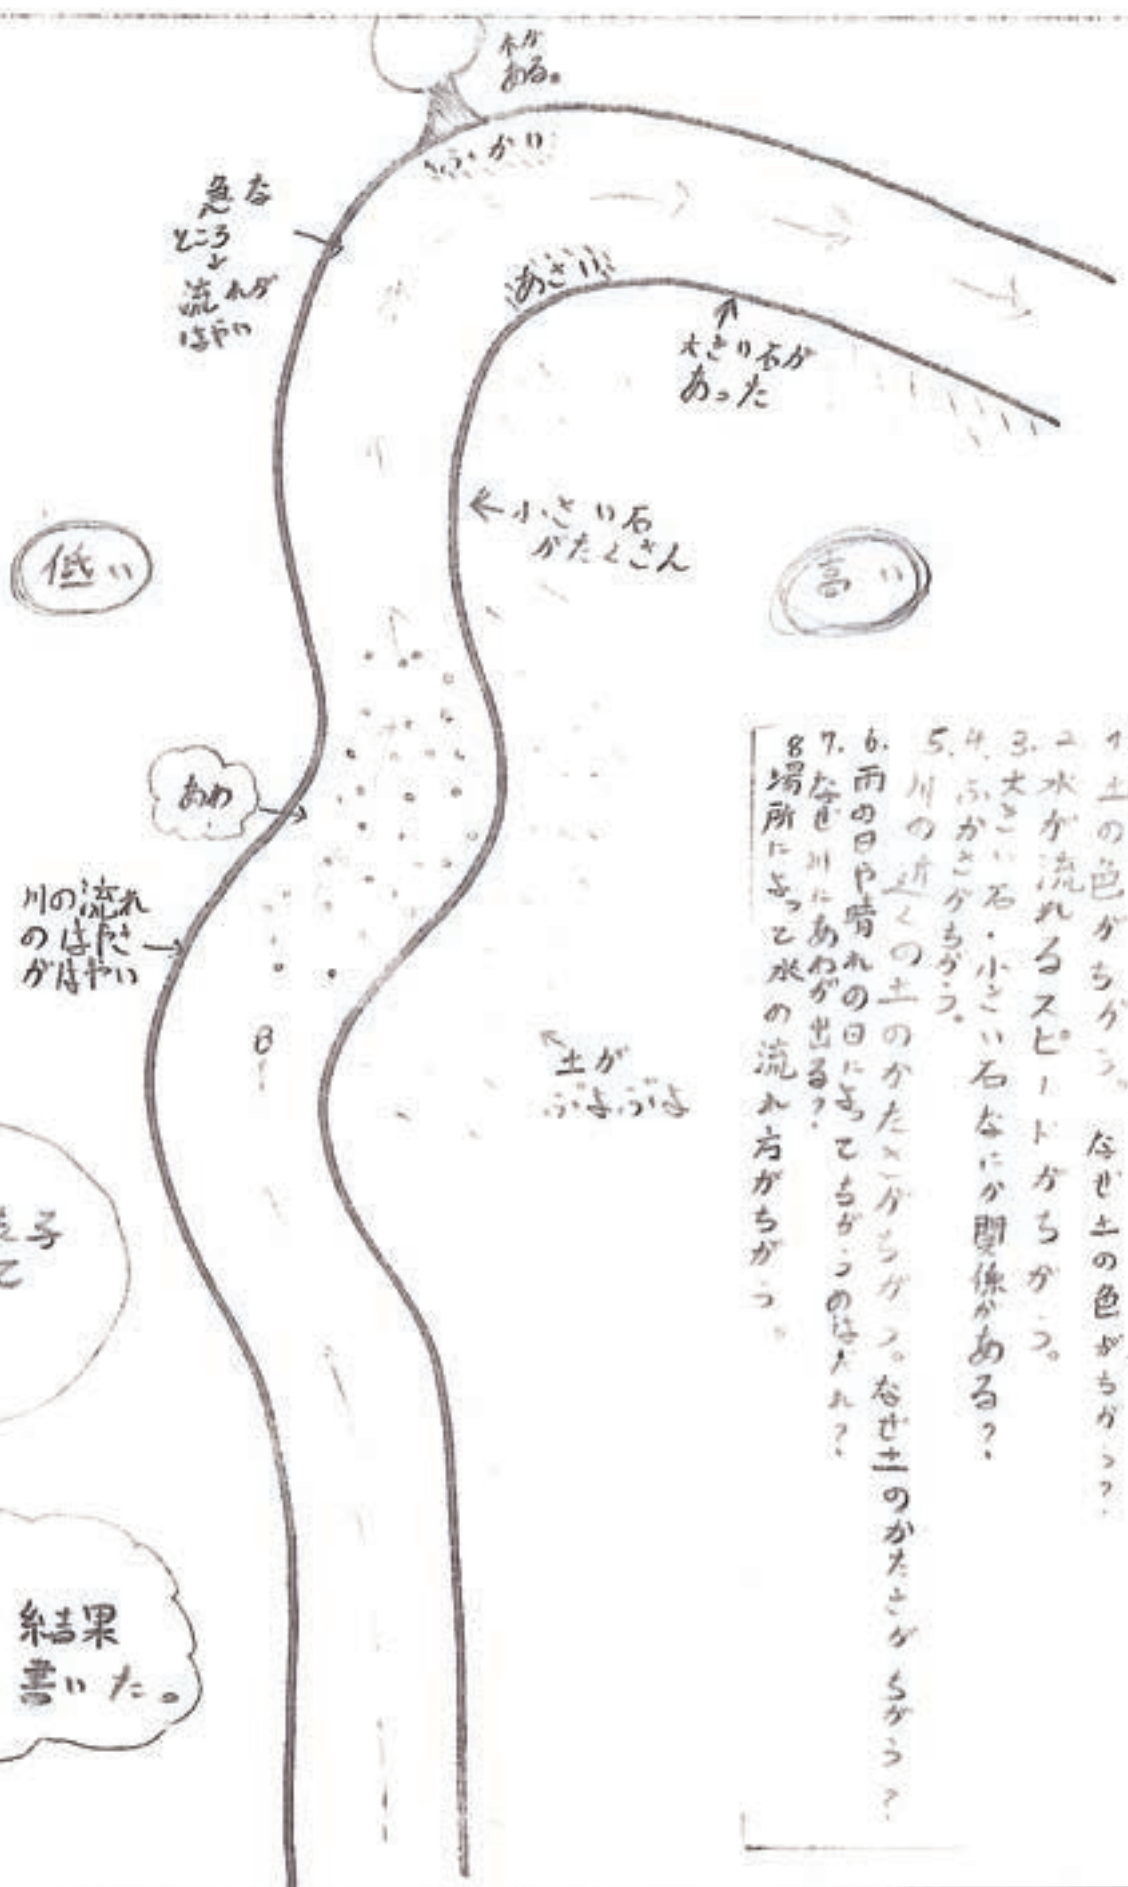 木が
ある。
ふかい
急な
ところ
↓
流れが
はやい
あさい
↑
大きい石が
あった
←小さい石
がたくさん
低い
高い
あわ
川の流れ
のはださ
がはやい
土が
ぶよぶよ
1 土の色がちがう。なぜ土の色がちがう?
2 水が流れるスピードがちがう。
3. 大きい石・小さい石なにか関係がある?
4. ふかさがちがう。
5. 川の近くの土のかたさがちがう。なぜ土のかたさがちがう?
6. 雨の日や晴れの日によってちがうのはなに?
7. なぜ川にあわが出る?
8 場所によって水の流れ方がちがう。
子
て
結果
書いた。